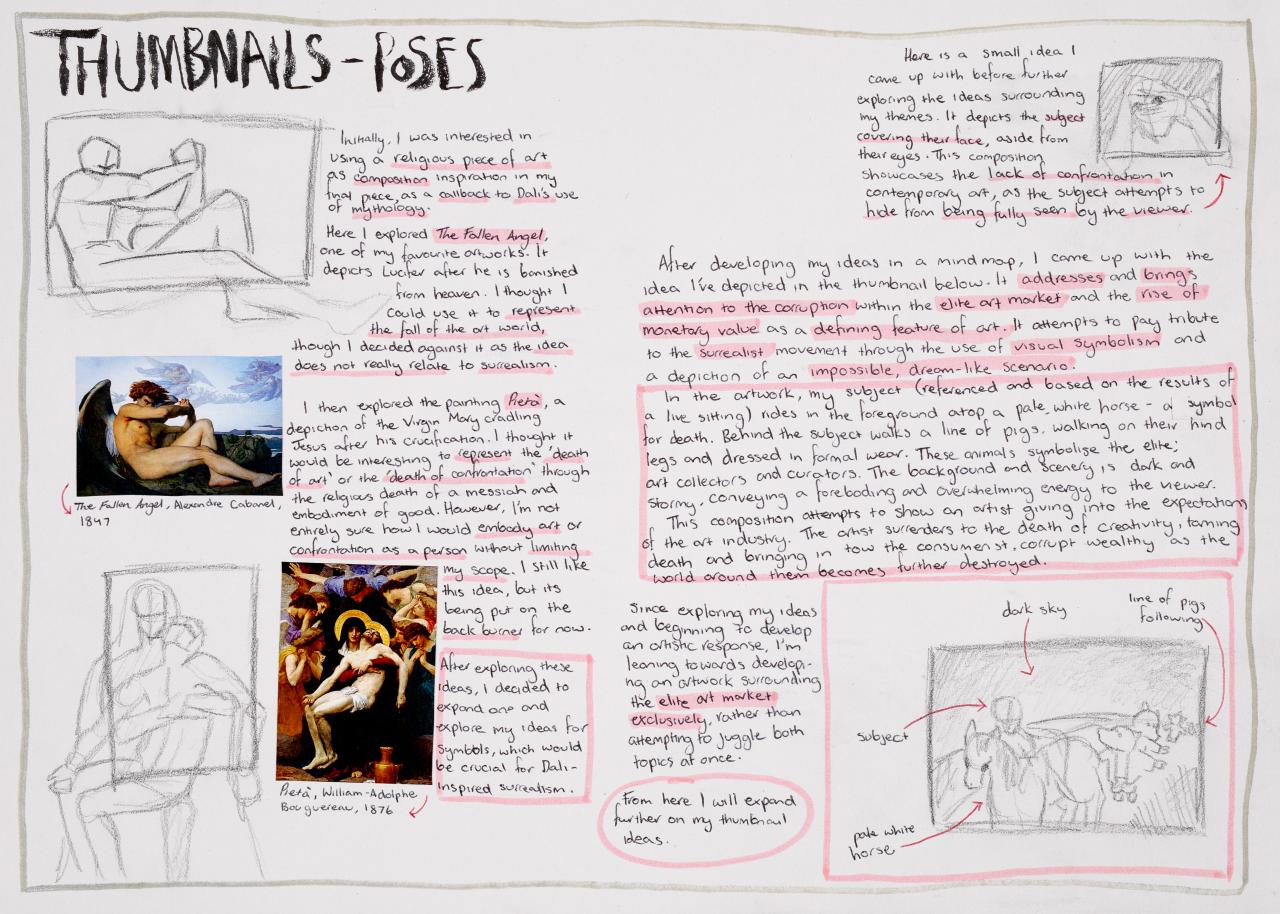 THUMBNAILS - POSES
Initially, I was interested in
using a religious piece of art
as composition inspiration in my
final piece, as a callback to Dalí's use
of mythology.
Here I explored The Fallen Angel,
one of my favourite artworks. It
depicts Lucifer after he is banished
from heaven. I thought I
could use it to represent
the fall of the art world,
though I decided against it as the idea
does not really relate to surrealism.
The Fallen Angel, Alexandre Cabanel,
1847
I then explored the painting Pietà, a
depiction of the Virgin Mary cradling
Jesus after his crucification. I thought it
would be interesting to represent the 'death
of art' or the 'death of confrontation' through
the religious death of a messiah and
embodiment of good. However, I'm not
entirely sure how I would embody art or
confrontation as a person without limiting
my scope. I still like
this idea, but its
being put on the
back burner for now.
Pietà, William-Adolphe
Bouguereau, 1876
After exploring these
ideas, I decided to
expand one and
explore my ideas for
symbols, which would
be crucial for Dalí-
inspired surrealism.
Here is a small idea I
came up with before further
exploring the ideas surrounding
my themes. It depicts the subject
covering their face, aside from
their eyes. This composition
showcases the lack of confrontation in
contemporary art, as the subject attempts to
hide from being fully seen by the viewer.
After developing my ideas in a mindmap, I came up with the
idea I've depicted in the thumbnail below. It addresses and brings
attention to the corruption within the elite art market and the rise of
monetary value as a defining feature of art. It attempts to pay tribute
to the surrealist movement through the use of visual symbolism and
a depiction of an impossible, dream-like scenario.
In the artwork, my subject (referenced and based on the results of
a live sitting) rides in the foreground atop a pale, white horse - a symbol
for death. Behind the subject walks a line of pigs, walking on their hind
legs and dressed in formal wear. These animals symbolise the elite;
art collectors and curators. The background and scenery is dark and
stormy, conveying a foreboding and overwhelming energy to the viewer.
This composition attempts to show an artist giving into the expectations
of the art industry. The artist surrenders to the death of creativity, taming
death and bringing in tow the consumerist, corrupt wealthy as the
world around them becomes further destroyed.
Since exploring my ideas
and beginning to develop
an artistic response, I'm
leaning towards developi-
ng an artwork surrounding
the elite art market
exclusively, rather than
attempting to juggle both
topics at once.
From here I will expand
further on my thumbnail
ideas.
dark sky
line of pigs
following
subject
pale white
horse